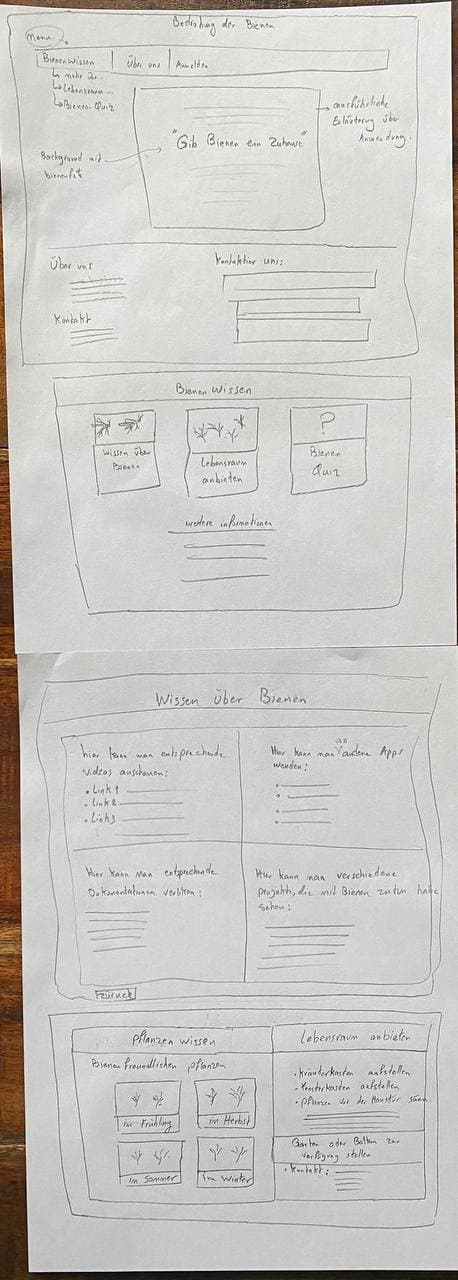 Bedrohung der Bienen
Menu
Bienenwissen
Über uns
Anmelden
mehr ür...
Lebensraum...
Bienen-Quiz
ausführliche
Erläuterug über
Anwendung.
"Gib Bienen ein Zuhause"
Background mit
bienenfot
Über uns
Kontaktior uns:
Kontakt
Bienen Wissen
Wissen über
Bienen
Lebensraum
anbieten
?
Bienen
Quiz
weitere informationen
Wissen über Bienen
hier kann man entsprechende
videos anschauen:
• Link 1
• Link 2
• Link 3
Hier kann man an andere Apps
wenden:
Hier kann man entsprechende
Dokumentationen verlinken:
Hier kann man verschiedene
projekte, die mit Bienen zu tun habe
sehen:
zurück
pflanzen wissen
Bienenfreundlichen pflanzen
im Frühling
im Herbst
im Sommer
im Winter
Lebensraum anbieten
• Kräuterkasten aufstellen
• Fensterkasten aufstellen
• pflanzen vor der Haustür
Garten oder Balkon zur
verfügung stellen
• Kontakt: